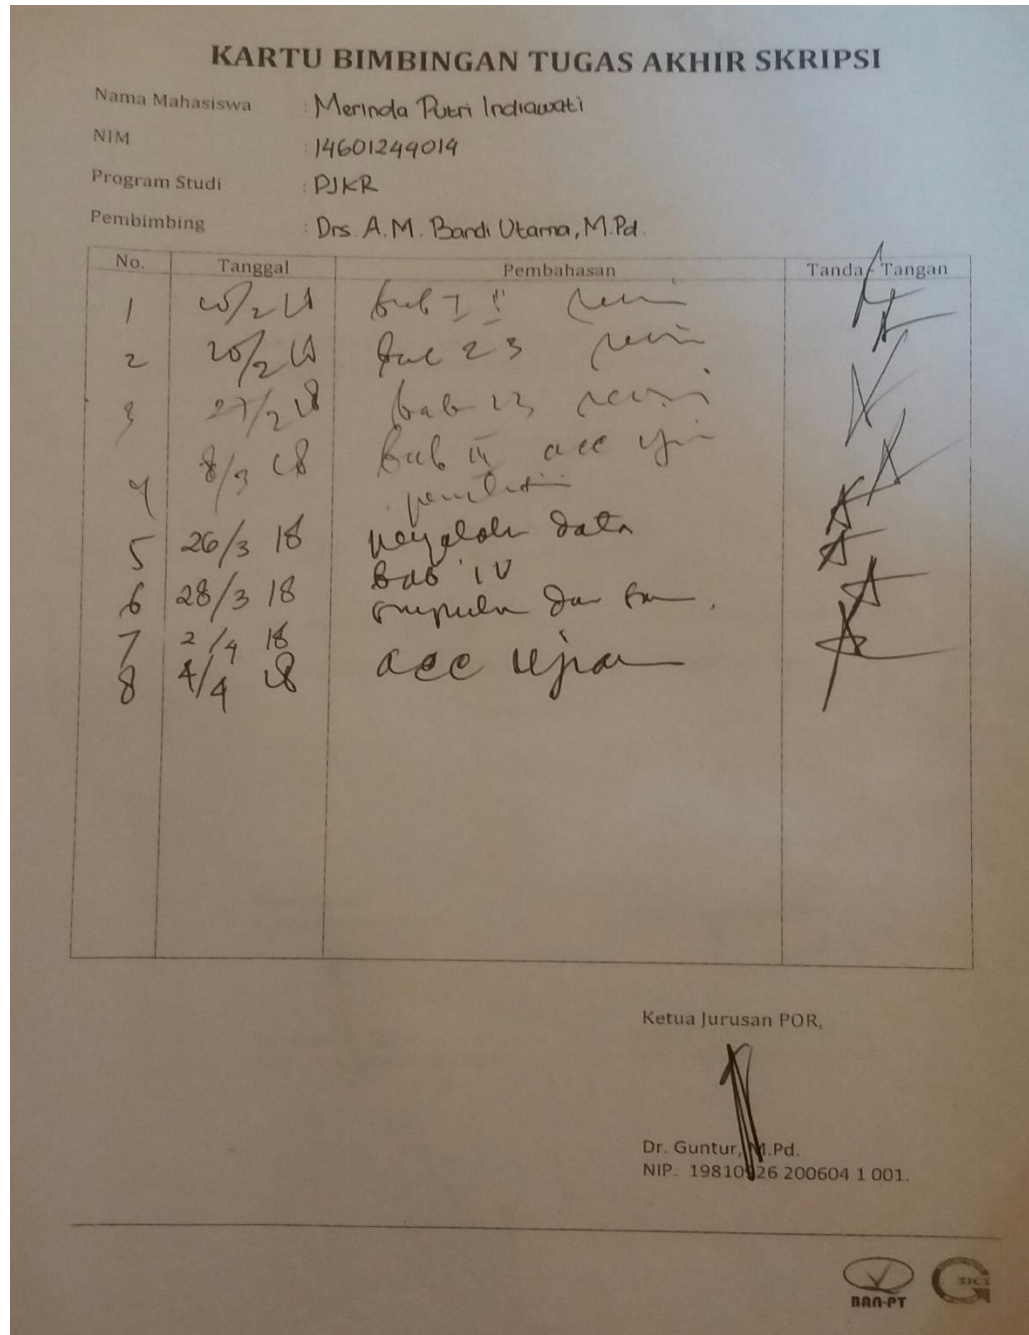 KARTU BIMBINGAN TUGAS AKHIR SKRIPSI
Nama Mahasiswa : Merinda Putri Indiawati
NIM : 14601249014
Program Studi : PJKR
Pembimbing : Drs. A.M. Bandi Utama, M.Pd.
No. Tanggal Pembahasan Tanda Tangan
1 /2 18 bab I revisi
2 20/2 18 bab 2 3 revisi
3 27/2 18 bab 23 revisi
4 8/3 18 bab acc
penelitian
5 26/3 18 data
bab IV
6 28/3 18 dan
7 2/4 18
8 4/4 18 acc ujian
Ketua Jurusan POR,
Dr. Guntur, M.Pd.
NIP. 26 200604 1 001.
BAN-PT